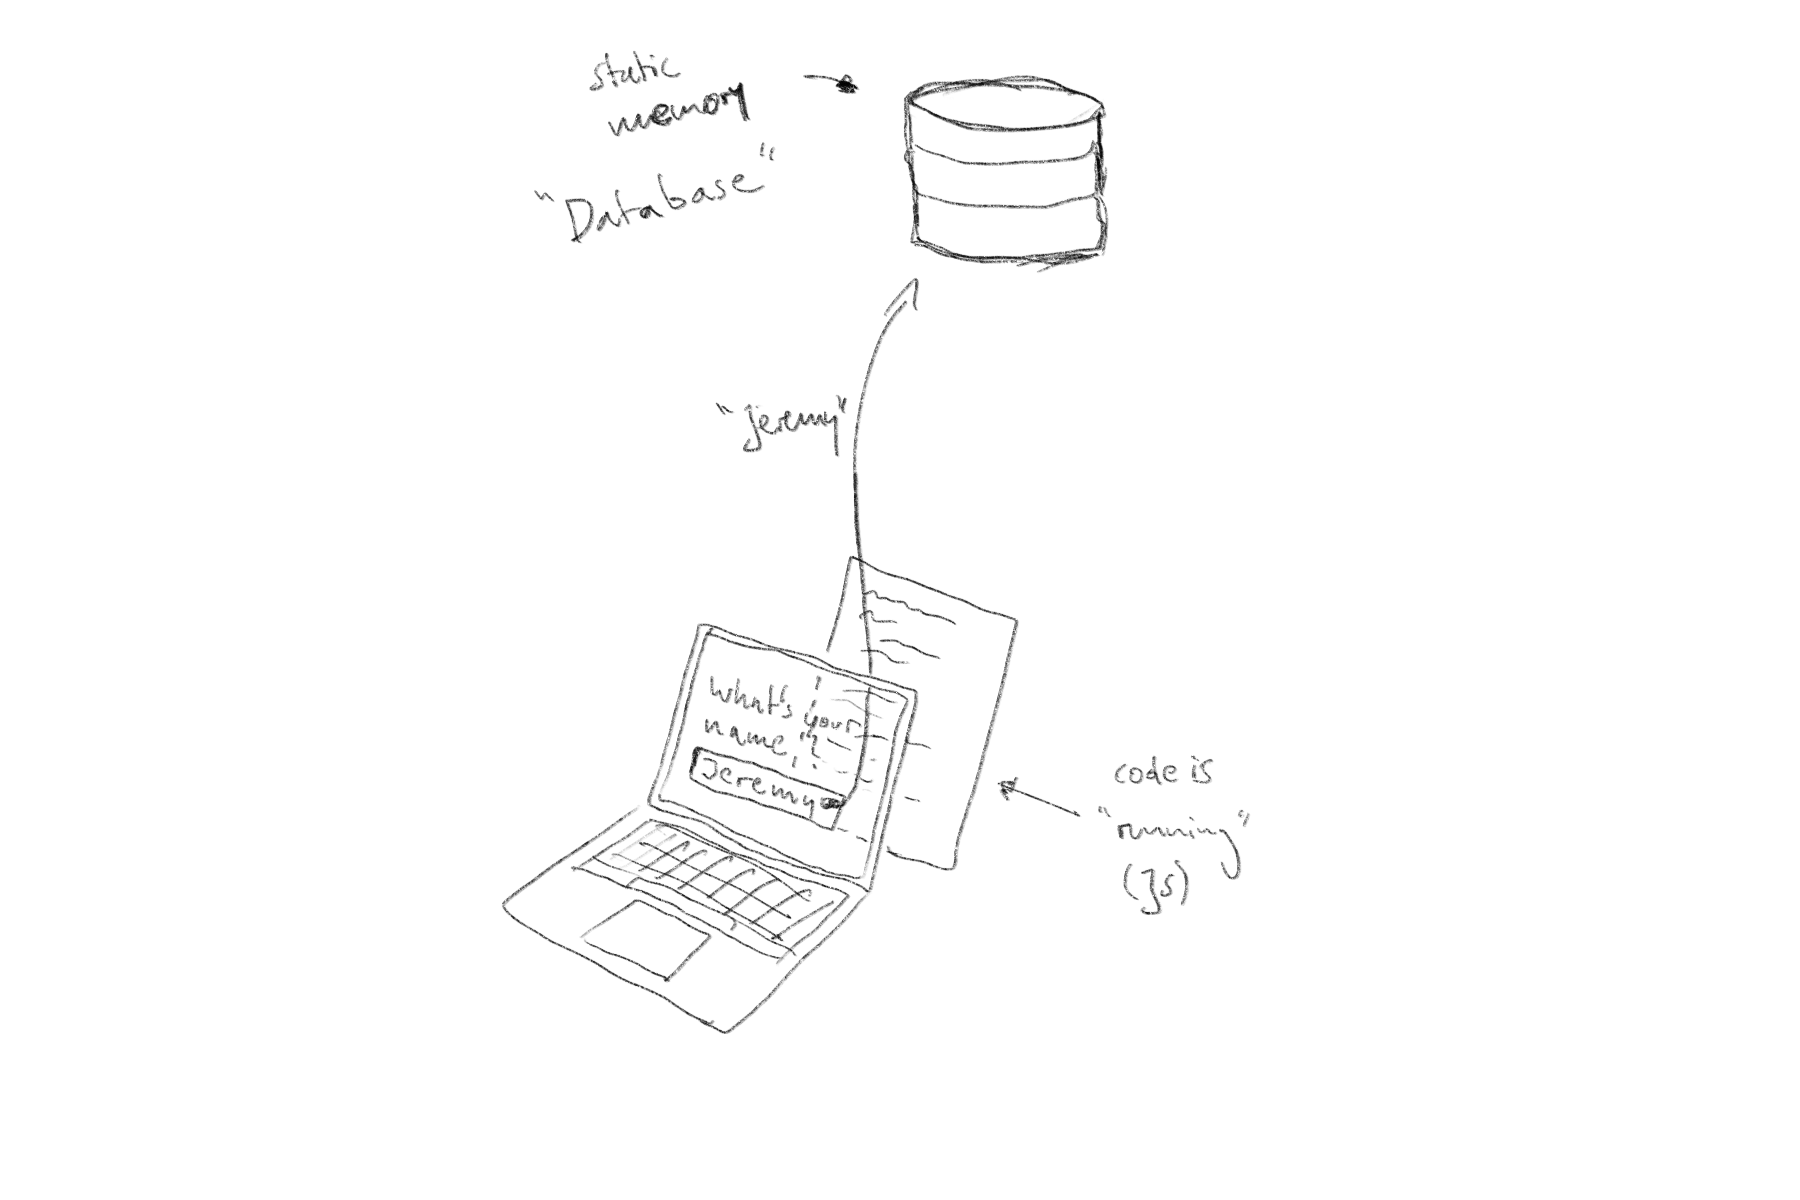 static
memory
"Database"
"Jeremy"
What's your
name,?
Jeremy
code is
"running"
(JS)